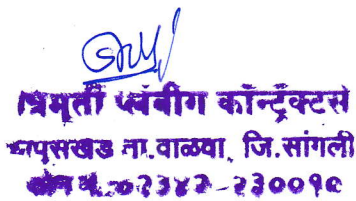 त्रिमुर्ती प्लंबींग कॉन्ट्रॅक्टर्स
कापुसखेड ता.वाळवा, जि.सांगली
फोन नं.०२३४२-२३००१८